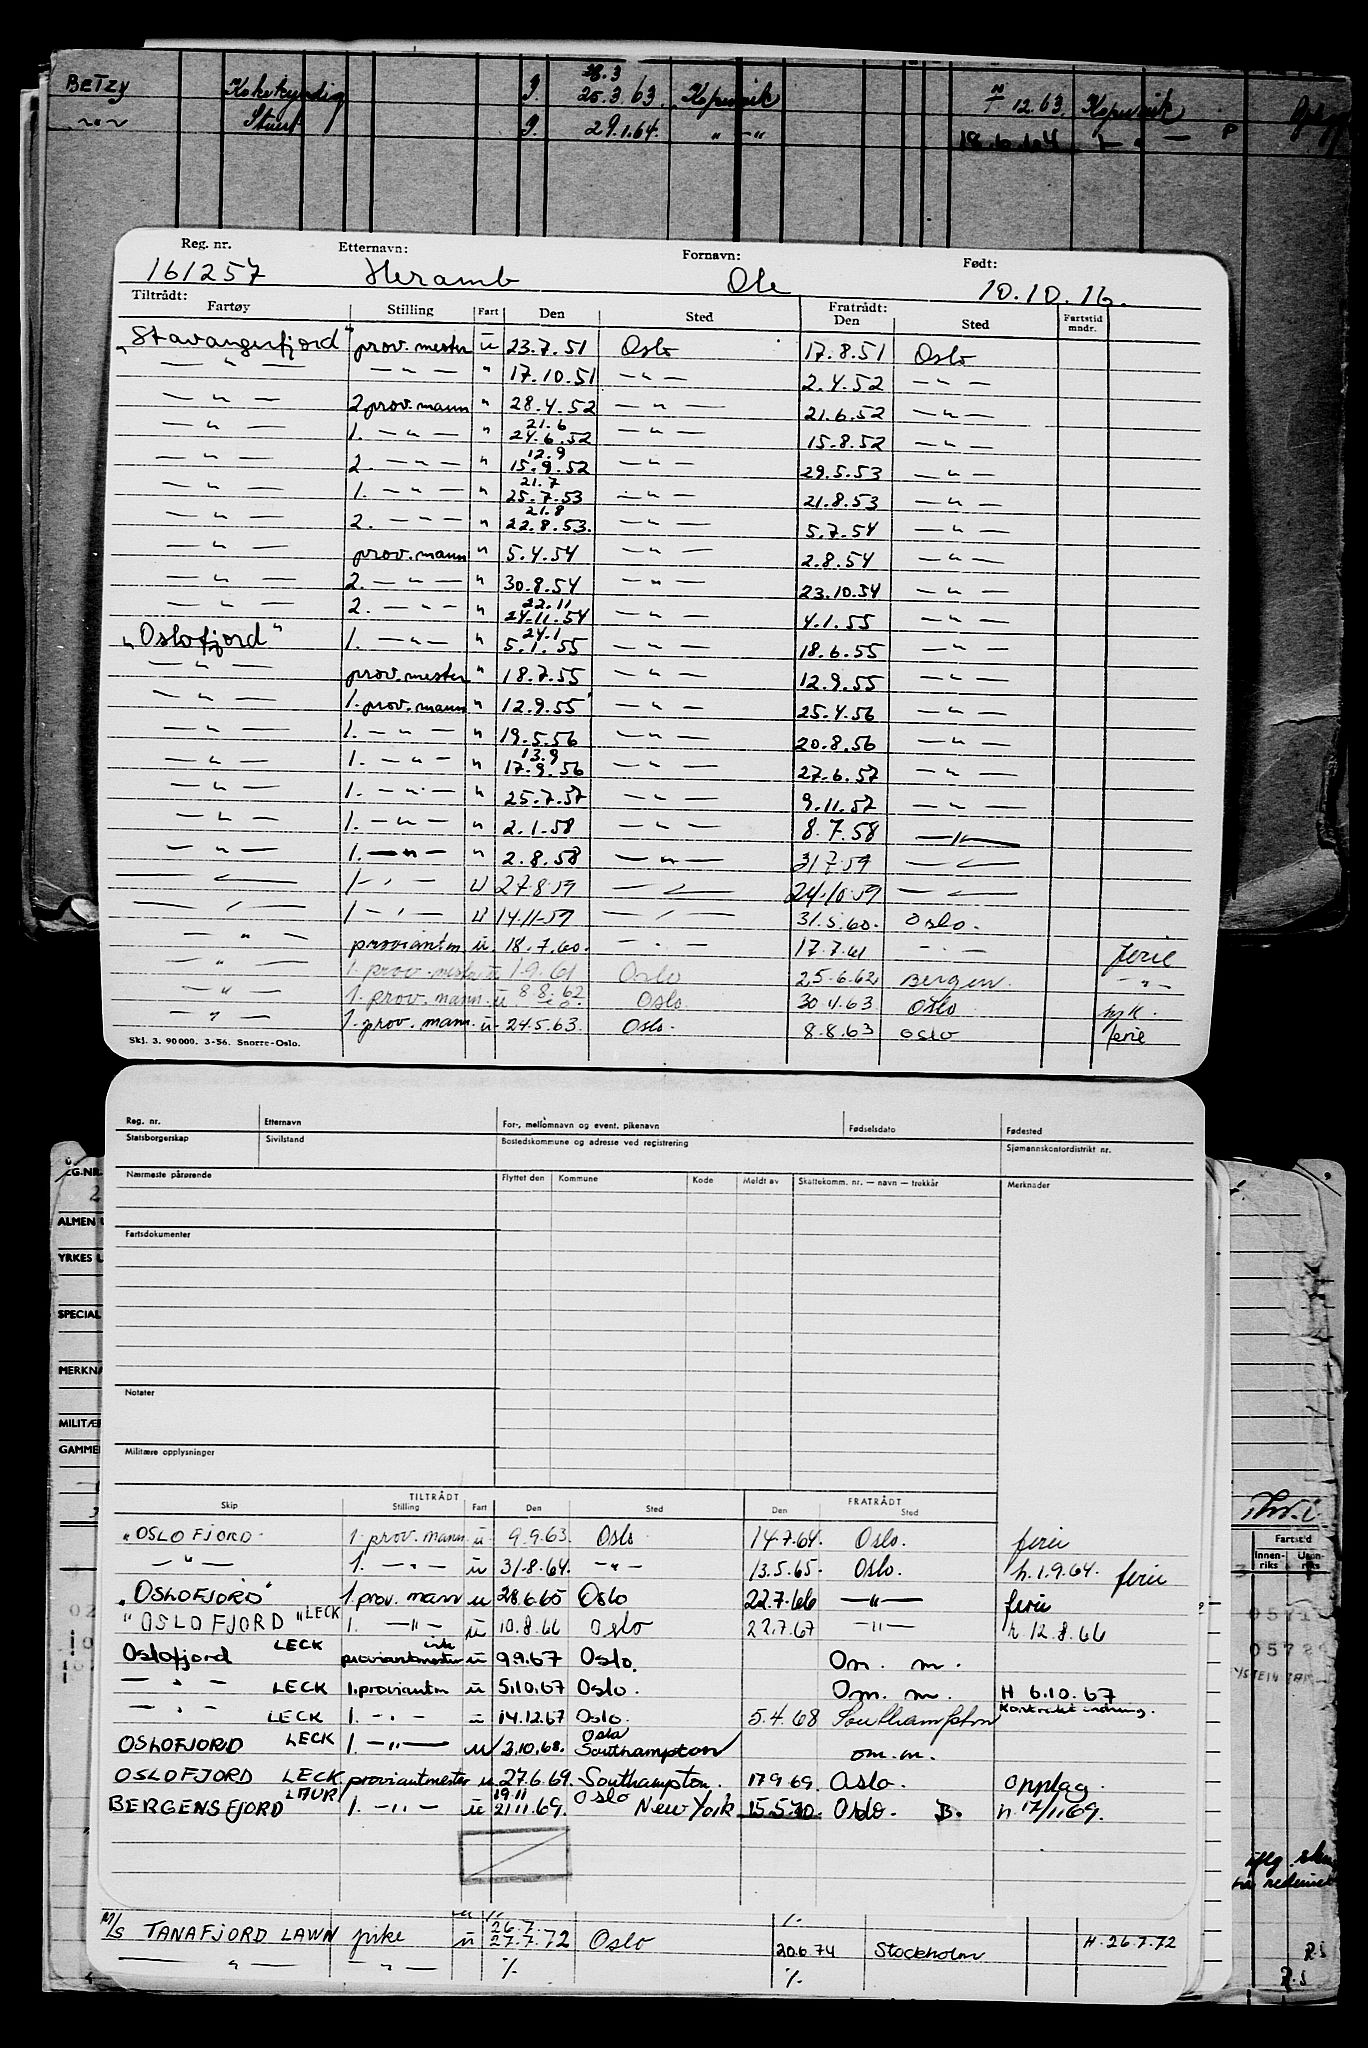 BETZY Kokekyndig 9. 28.3 25.3.63 Kopervik 12.63 Kopervik
—"— Stuert 9. 29.1.64 " —" 18.6.64 — " — P
Reg. nr. Etternavn: Fornavn: Født:
161257 Heramb Ole 10.10.16.
Tiltrådt: Fartøy Stilling Fart Den Sted Fratrådt: Den Sted Fartstid mndr.
"Stavangerfjord" prov.mester ü 23.7.51 Oslo 17.8.51 Oslo
— " — — " — " 17.10.51 — " — 2.4.52 — " —
— " — 2 prov.mann " 28.4.52 — " — 21.6.52 — " —
— " — 1. — " — " 21.6 24.6.52 — " — 15.8.52 — " —
— " — 2. — " — " 12.9 15.9.52 — " — 29.5.53 — " —
— " — 1. — " — " 21.7 25.7.53 — " — 21.8.53 — " —
— " — 2. — " — " 21.8 22.8.53. — " — 5.7.54 — " —
— " — prov.mann " 5.4.54 — " — 2.8.54 — " —
— " — 2. — " — " 30.8.54 — " — 23.10.54 — " —
— " — 2. — " — " 22.11 24.11.54 — " — 4.1.55 — " —
"Oslofjord" 1. — " — " 24.1 5.1.55 — " — 18.6.55 — " —
— " — prov.mester " 18.7.55 — " — 12.9.55 — " —
— " — 1. prov.mann " 12.9.55 — " — 25.4.56 — " —
— " — 1. — " — " 19.5.56 — " — 20.8.56 — " —
— " — 1. — " — " 13.9 17.9.56 — " — 27.6.57 — " —
— " — 1. — " — " 25.7.57 — " — 9.11.57 — " —
— " — 1. — " — " 2.1.58 — " — 8.7.58 — " —
— " — 1. — " — " 2.8.58 — " — 31.7.59 — " —
— " — 1 — " — U 27.8.59 — " — 24.10.59 — " —
— " — 1 — " — U 14.11.59 — " — 31.5.60. Oslo.
— " — proviantm ü. 18.7.60. — " — 17.7.61 — " — ferie
— " — 1. prov.mester ü 1.9.61 Oslo 25.6.62 Bergen. — " —
— " — 1. prov.mann. ü 8.8.62 Oslo. 30.4.63 Oslo syk.
— " — 1. prov.mann. ü. 24.5.63. Oslo. 8.8.63 Oslo ferie
Skj. 3. 90 000. 3-56. Snorre-Oslo.
Reg. nr. Etternavn For-, mellomnavn og event. pikenavn Fødselsdato Fødested
Statsborgerskap Sivilstand Bostedskommune og adresse ved registrering Sjømannskontordistrikt nr.
Nærmeste pårørende Flyttet den Kommune Kode Meldt av Skattekomm. nr. — navn — trekkår Merknader
Fartsdokumenter
Notater
Militære opplysninger
TILTRÅDT FRATRÅDT
Skip Stilling Fart Den Sted Den Sted
"OSLOFJORD" 1. prov.mann ü 9.9.63. Oslo 14.7.64. Oslo. ferie
— " — 1. — " — ü 31.8.64. — " — 13.5.65. Oslo. h.1.9.64. ferie
"OSLOFJORD" 1.prov.mann ü 28.6.65 Oslo 22.7.66 — " — ferie
"OSLOFJORD" LECK 1. — " — ü 10.8.66 Oslo 22.7.67 — " — h 12.8.66
Oslofjord LECK proviantmester ü 9.9.67 Oslo. Om. m.
— " — LECK 1.proviantm ü 5.10.67 Oslo. Om. m. H 6.10.67
— " — LECK 1. — " — ü 14.12.67 Oslo. 5.4.68 Southampton Kontrakt endring.
OSLOFJORD LECK 1. — " — ü 3.10.68. Oslo Southampton om.m.
OSLOFJORD LECK proviantmester ü 27.6.69. Southampton. 17.9.69. Oslo. Opplag.
BERGENSFJORD LAUR 1. — " — ü 19.11 21.11.69. Oslo New York 15.5.70. Oslo. B. h 17/11.69.
M/S TANAFJORD LAWN pike ü 26.7. 27.7.72 Oslo 20.6.74 Stockholm H.26.7.72
— " — — " — ./. ./.
ALMEN
YRKES
SPECIAL
MERKNA
MILITÆR
GAMMEL
Fartstid
Innen-riks Uten-riks